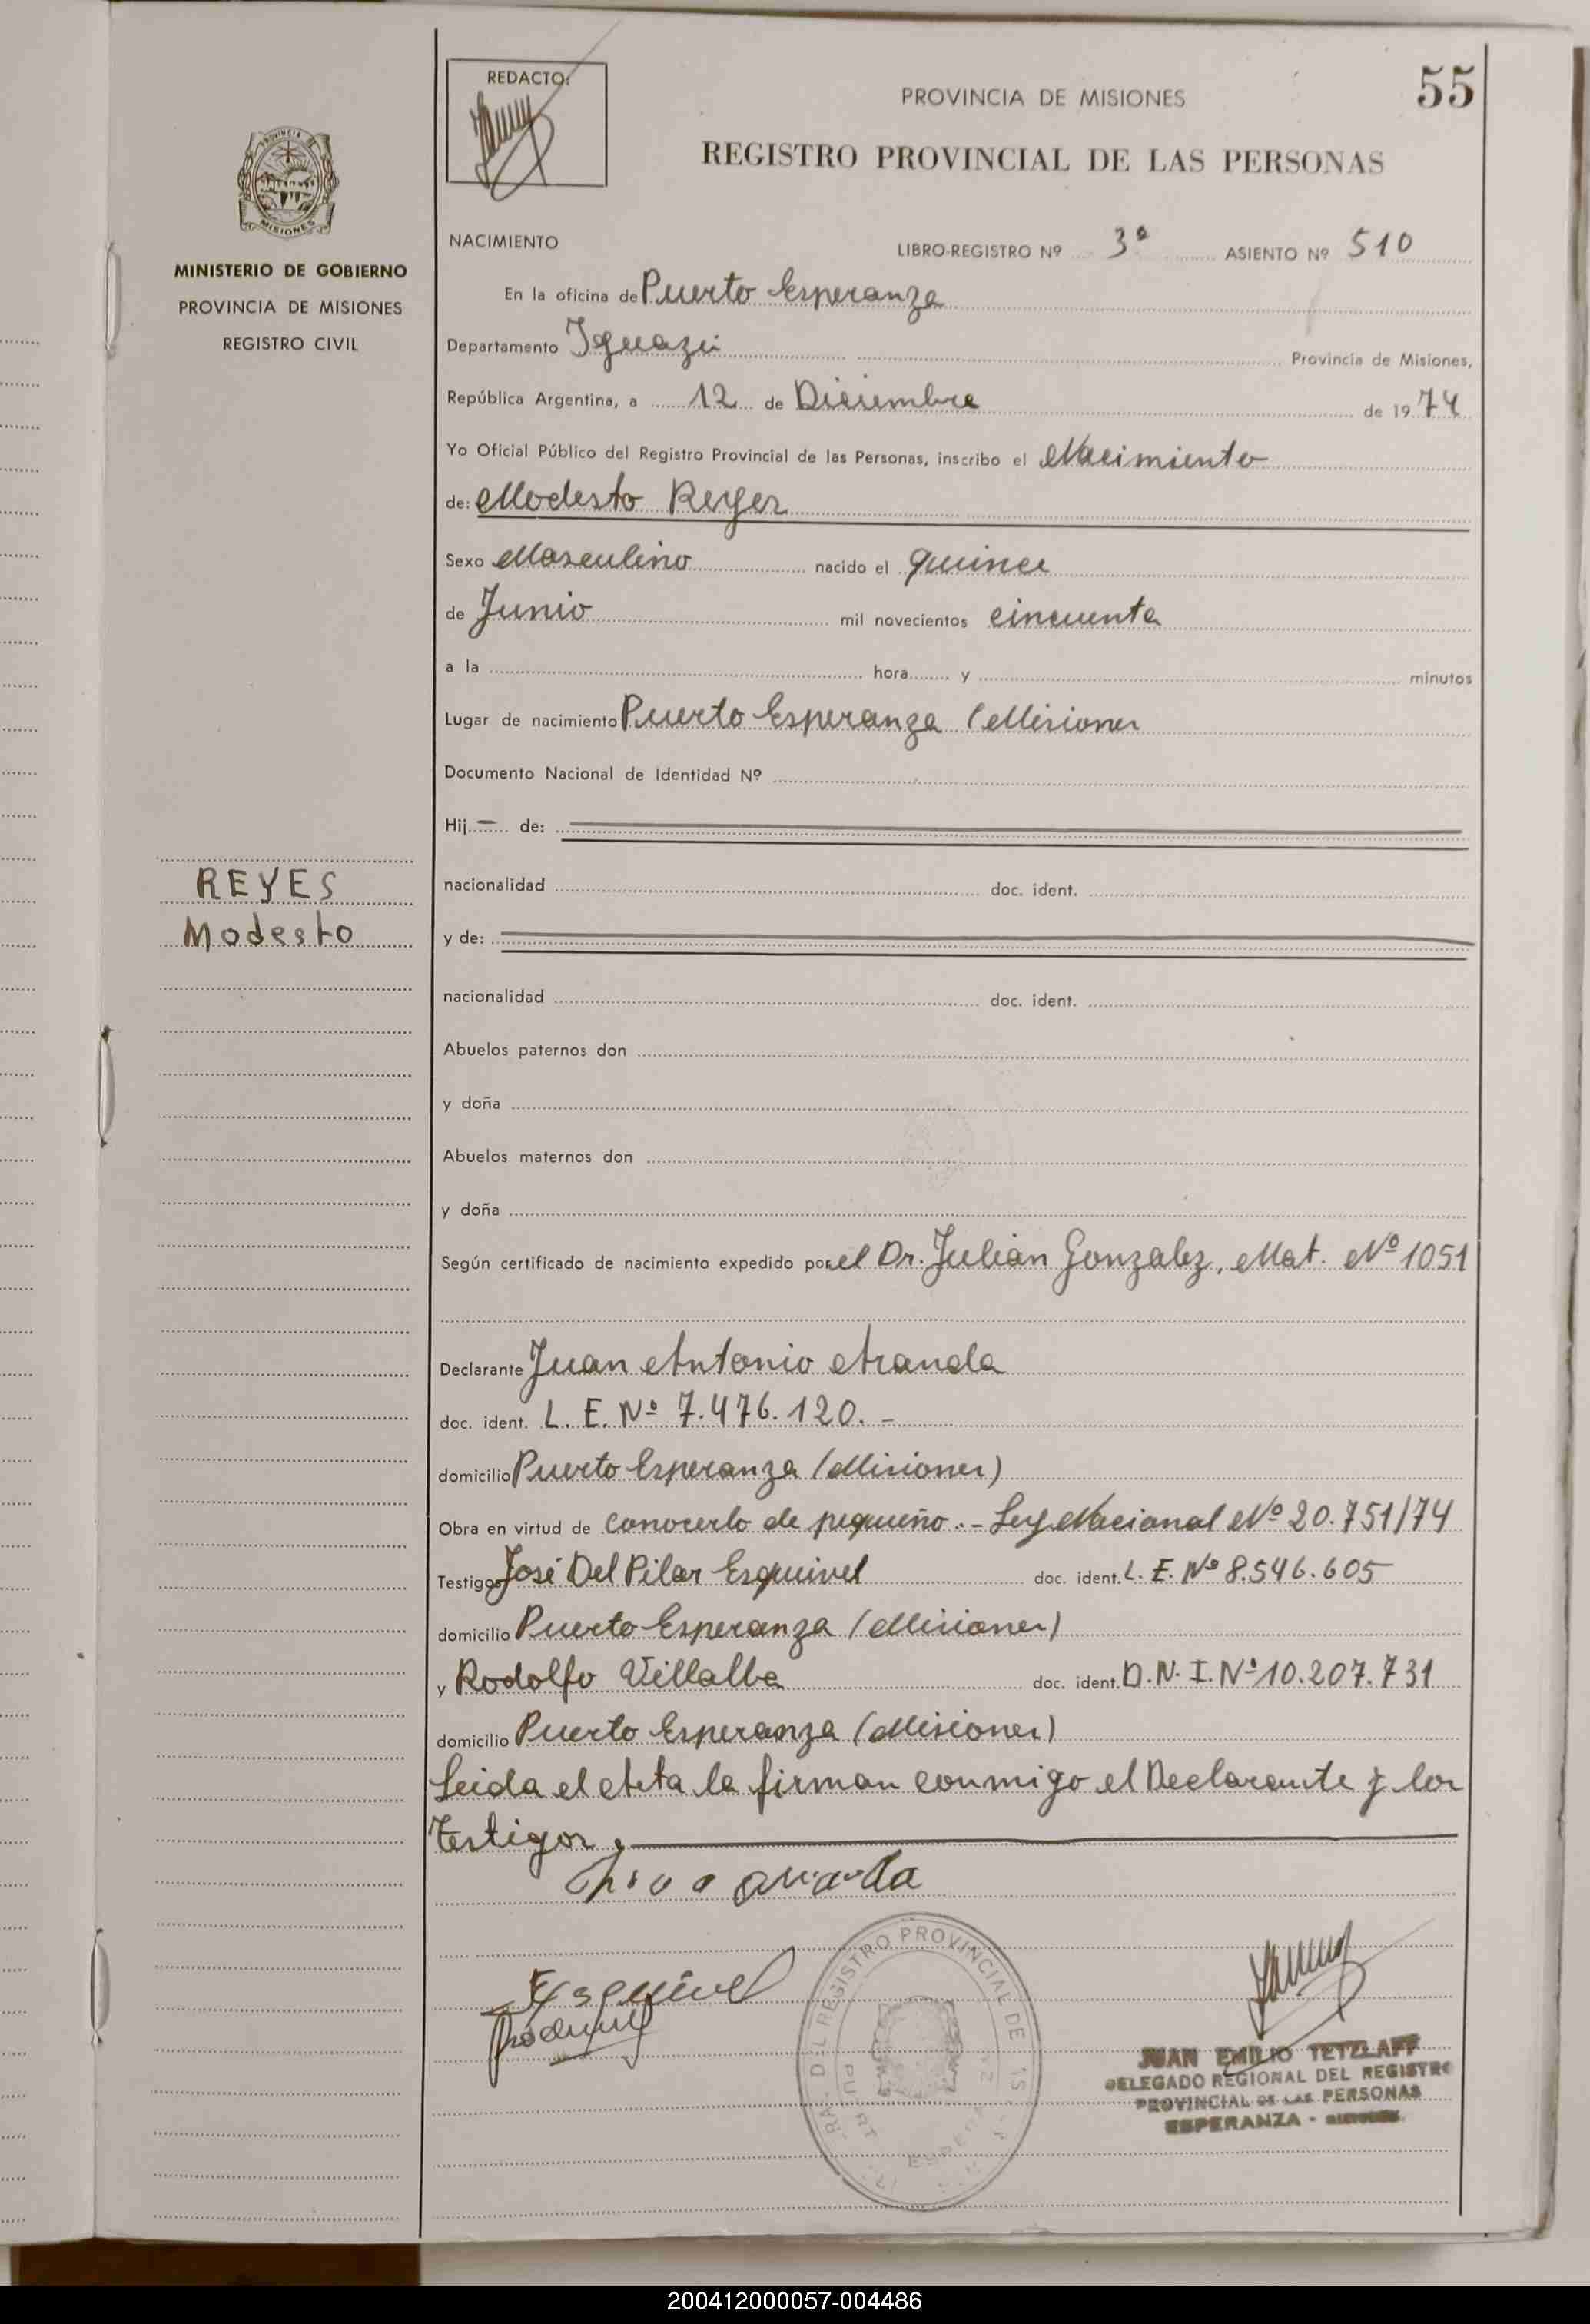 REDACTO:
PROVINCIA DE MISIONES
55
REGISTRO PROVINCIAL DE LAS PERSONAS
PROVINCIA
MISIONES
MINISTERIO DE GOBIERNO
PROVINCIA DE MISIONES
REGISTRO CIVIL
NACIMIENTO
LIBRO-REGISTRO Nº 3ª ASIENTO Nº 510
En la oficina de Puerto Esperanza
Departamento Iguazú Provincia de Misiones,
República Argentina, a 12 de Diciembre de 1974
Yo Oficial Público del Registro Provincial de las Personas, inscribo el Nacimiento
de: Modesto Reyes
Sexo Masculino nacido el quince
de Junio mil novecientos cincuenta
a la hora y minutos
Lugar de nacimiento Puerto Esperanza (Misiones
Documento Nacional de Identidad Nº
Hij — de:
REYES
Modesto
nacionalidad doc. ident.
y de:
nacionalidad doc. ident.
Abuelos paternos don
y doña
Abuelos maternos don
y doña
Según certificado de nacimiento expedido por el Dr. Julián Gonzalez, Mat. Nº 1051
Declarante Juan Antonio Aranda
doc. ident. L. E. Nº 7.476.120. -
domicilio Puerto Esperanza (Misiones)
Obra en virtud de conocerlo de pequeño.- Ley Nacional Nº 20.751/74
Testigos José Del Pilar Esquivel doc. ident. L. E. Nº 8.546.605
domicilio Puerto Esperanza (Misiones)
y Rodolfo Villalba doc. ident. D.N.I. Nº 10.207.731
domicilio Puerto Esperanza (Misiones)
Leida el Acta la firman conmigo el Declarante y los
Testigos.
aranda
Esquivel
DEL REGISTRO PROVINCIAL DE
JUAN EMILIO TETZLAFF
DELEGADO REGIONAL DEL REGISTRO
PROVINCIAL DE LAS PERSONAS
ESPERANZA -
200412000057-004486